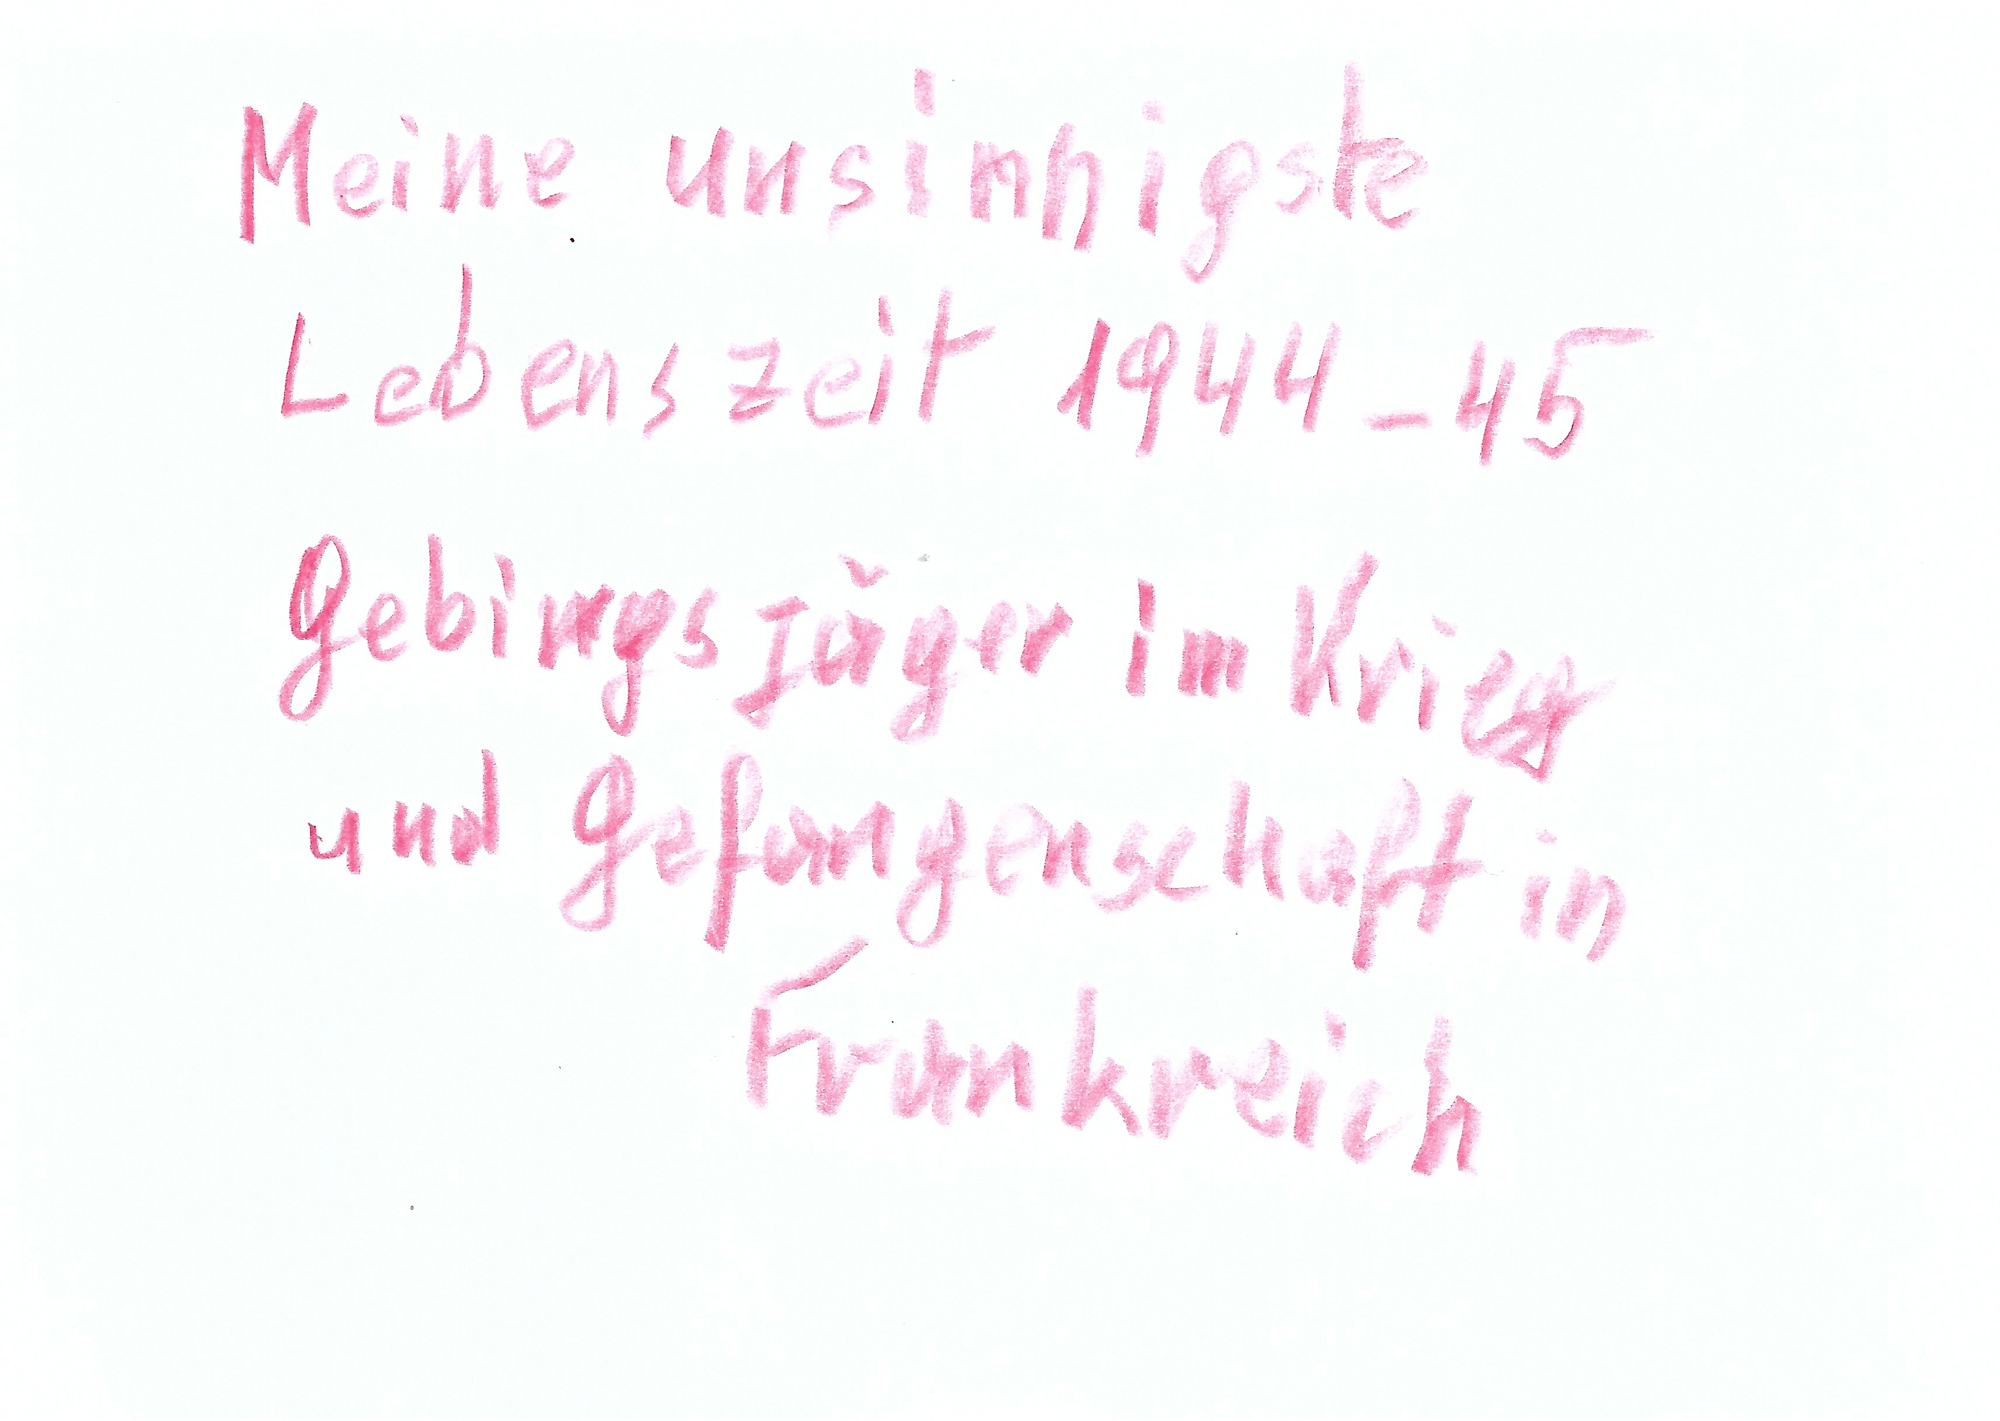 Meine unsinnigste
Lebenszeit 1944-45
Gebirgsjäger im Krieg
und Gefangenschaft in
Frankreich